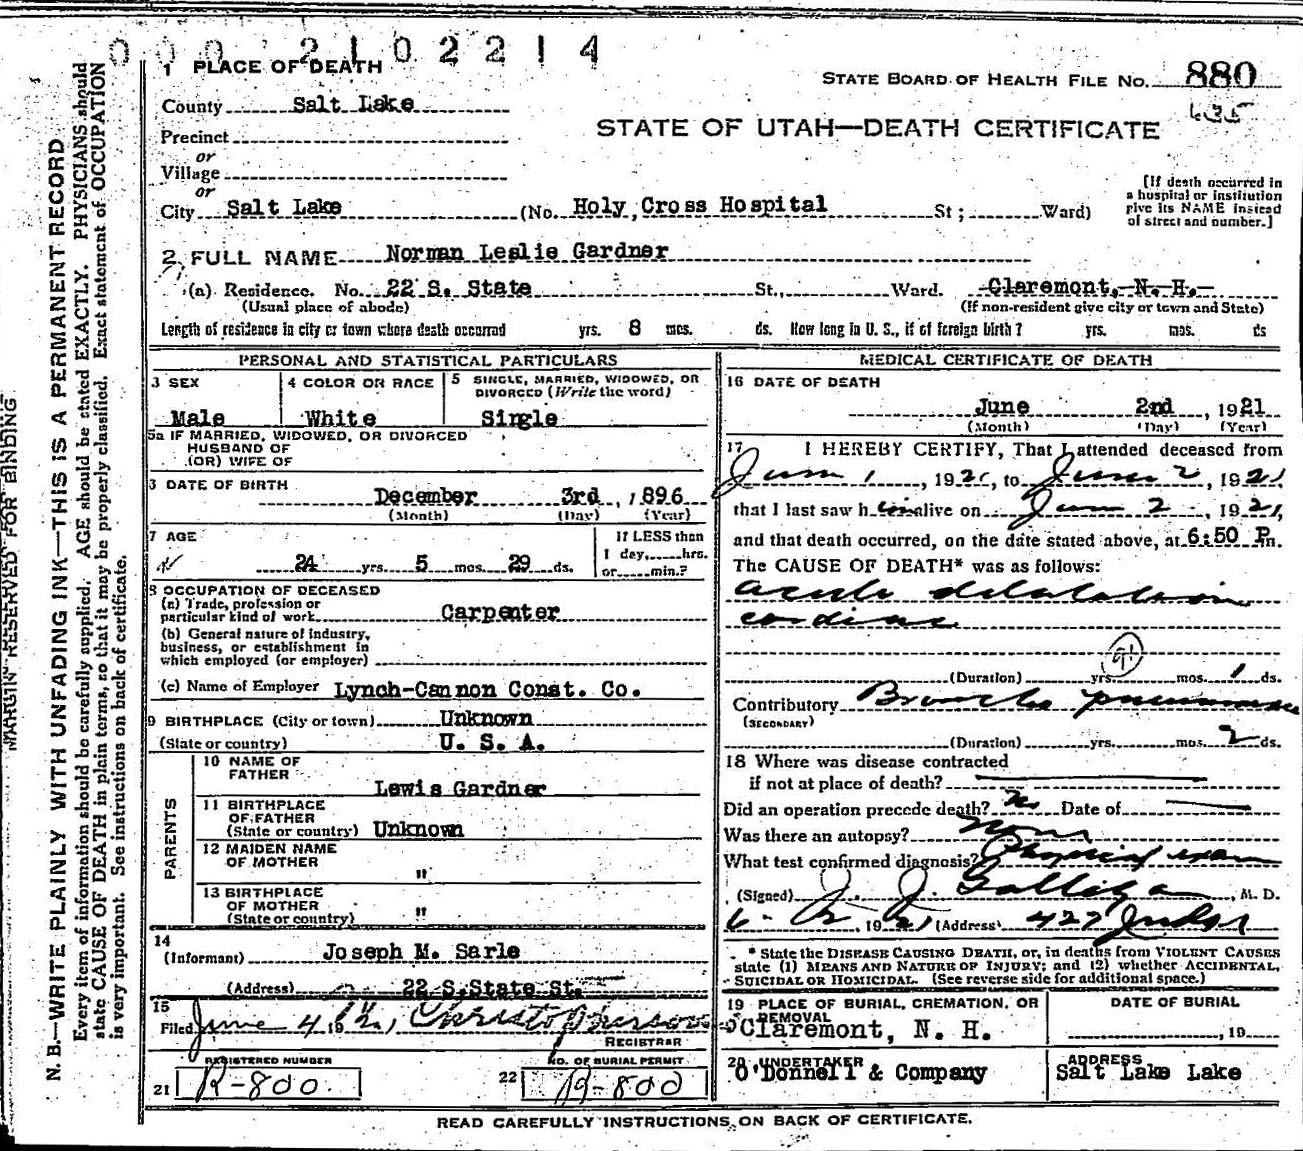 0002102214
1 PLACE OF DEATH
STATE BOARD OF HEALTH FILE No. 880
County Salt Lake
635
STATE OF UTAH—DEATH CERTIFICATE
Precinct
or
Village
or
City Salt Lake (No. Holy Cross Hospital St; Ward)
[If death occurred in
a hospital or institution
give its NAME instead
of street and number.]
2 FULL NAME Norman Leslie Gardner
(a) Residence. No. 22 S. State St., Ward. Claremont, N. H.
(Usual place of abode) (If non-resident give city or town and State)
Length of residence in city or town where death occurred yrs. 8 mos. ds. How long in U. S., if of foreign birth? yrs. mos. ds
PERSONAL AND STATISTICAL PARTICULARS
3 SEX
Male
4 COLOR OR RACE
White
5 SINGLE, MARRIED, WIDOWED, OR
DIVORCED (Write the word)
Single
5a IF MARRIED, WIDOWED, OR DIVORCED
HUSBAND OF
(OR) WIFE OF
3 DATE OF BIRTH
December 3rd, 1896
(Month) (Day) (Year)
7 AGE
24 yrs. 5 mos. 29 ds.
If LESS then
1 day,.....hrs.
or.....min.?
8 OCCUPATION OF DECEASED
(a) Trade, profession or
particular kind of work Carpenter
(b) General nature of industry,
business, or establishment in
which employed (or employer)
(c) Name of Employer Lynch-Cannon Const. Co.
9 BIRTHPLACE (City or town) Unknown
(State or country) U. S. A.
PARENTS
10 NAME OF
FATHER
Lewis Gardner
11 BIRTHPLACE
OF FATHER
(State or country) Unknown
12 MAIDEN NAME
OF MOTHER "
13 BIRTHPLACE
OF MOTHER
(State or country) "
14
(Informant) Joseph M. Sarle
(Address) 22 S. State St.
15
Filed June 4 19 21, Christopherson
REGISTRAR
REGISTERED NUMBER
21 R-800.
NO. OF BURIAL PERMIT
22 R-800
MEDICAL CERTIFICATE OF DEATH
16 DATE OF DEATH
June 2nd, 1921
(Month) (Day) (Year)
17 I HEREBY CERTIFY, That I attended deceased from
June 1, 1921, to June 2, 1921
that I last saw h im alive on June 2, 1921,
and that death occurred, on the date stated above, at 6:50 P.m.
The CAUSE OF DEATH* was as follows:
acute dilatation
cardiac
91
(Duration) yrs. mos. 1 ds.
Contributory Broncho pneumonia
(SECONDARY)
(Duration) yrs. mos. 2 ds.
18 Where was disease contracted
if not at place of death?
Did an operation precede death? No Date of
Was there an autopsy? None
What test confirmed diagnosis? Physical exam
(Signed) J. J. Galligan, M. D.
6-2, 1921 (Address) 427 Judge
* State the DISEASE CAUSING DEATH, or, in deaths from VIOLENT CAUSES
state (1) MEANS AND NATURE OF INJURY; and (2) whether ACCIDENTAL,
SUICIDAL OR HOMICIDAL. (See reverse side for additional space.)
19 PLACE OF BURIAL, CREMATION, OR
REMOVAL
Claremont, N. H.
DATE OF BURIAL
, 19
20 UNDERTAKER
O'Donnell & Company
ADDRESS
Salt Lake Lake
READ CAREFULLY INSTRUCTIONS ON BACK OF CERTIFICATE.
MARGIN RESERVED FOR BINDING
N. B.—WRITE PLAINLY WITH UNFADING INK—THIS IS A PERMANENT RECORD
Every item of information should be carefully supplied. AGE should be stated EXACTLY. PHYSICIANS should
state CAUSE OF DEATH in plain terms, so that it may be properly classified. Exact statement of OCCUPATION
is very important. See instructions on back of certificate.